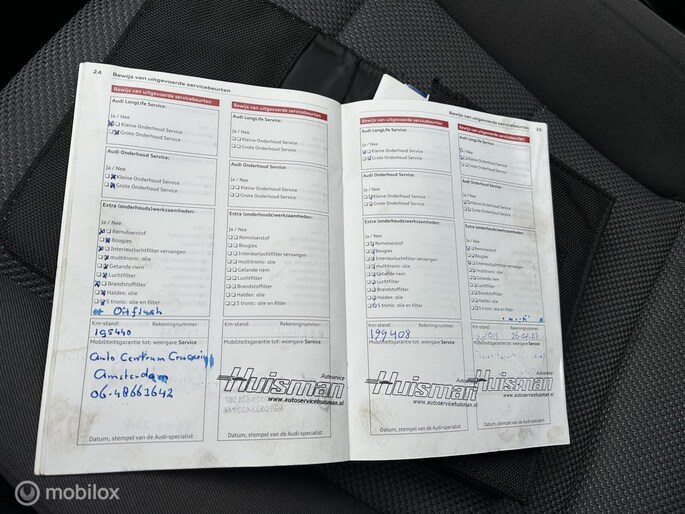 24 Bewijs van uitgevoerde servicebeurten
Bewijs van uitgevoerde servicebeurten
Audi LongLife Service:
Ja / Nee
Kleine Onderhoud Service
Grote Onderhoud Service
Audi Onderhoud Service:
Ja / Nee
Kleine Onderhoud Service
Grote Onderhoud Service
Extra (onderhouds)werkzaamheden:
Ja / Nee
Remvloeistof
Bougies
Interieurluchtfilter vervangen
multitronic: olie
Getande riem
Luchtfilter
Brandstoffilter
Haldex: olie
S tronic: olie en filter
Km-stand: Rekeningnummer:
195440
Mobiliteitsgarantie tot: weergave Service
Auto Centrum
Amsterdam
06-48663642
Datum, stempel van de Audi-specialist
Bewijs van uitgevoerde servicebeurten
Audi LongLife Service:
Ja / Nee
Kleine Onderhoud Service
Grote Onderhoud Service
Audi Onderhoud Service:
Ja / Nee
Kleine Onderhoud Service
Grote Onderhoud Service
Extra (onderhouds)werkzaamheden:
Ja / Nee
Remvloeistof
Bougies
Interieurluchtfilter vervangen
multitronic: olie
Getande riem
Luchtfilter
Brandstoffilter
Haldex: olie
S tronic: olie en filter
Km-stand: Rekeningnummer:
Mobiliteitsgarantie tot: weergave Service
Autoservice
Huisman
www.autoservicehuisman.nl
Datum, stempel van de Audi-specialist
Bewijs van uitgevoerde servicebeurten 25
Bewijs van uitgevoerde servicebeurten
Audi LongLife Service:
Ja / Nee
Kleine Onderhoud Service
Grote Onderhoud Service
Audi Onderhoud Service:
Ja / Nee
Kleine Onderhoud Service
Grote Onderhoud Service
Extra (onderhouds)werkzaamheden:
Ja / Nee
Remvloeistof
Bougies
Interieurluchtfilter vervangen
multitronic: olie
Getande riem
Luchtfilter
Brandstoffilter
Haldex: olie
S tronic: olie en filter
Km-stand: Rekeningnummer:
199408
Mobiliteitsgarantie tot: weergave Service
Autoservice
Huisman
www.autoservicehuisman.nl
Datum, stempel van de Audi-specialist
Bewijs van uitgevoerde servicebeurten
Audi LongLife Service:
Ja / Nee
Kleine Onderhoud Service
Grote Onderhoud Service
Audi Onderhoud Service:
Ja / Nee
Kleine Onderhoud Service
Grote Onderhoud Service
Extra (onderhouds)werkzaamheden:
Ja / Nee
Remvloeistof
Bougies
Interieurluchtfilter vervangen
multitronic: olie
Getande riem
Luchtfilter
Brandstoffilter
Haldex: olie
S tronic: olie en filter
Km-stand: Rekeningnummer:
Mobiliteitsgarantie tot: weergave Service
Autoservice
Huisman
www.autoservicehuisman.nl
Datum, stempel van de Audi-specialist
mobilox